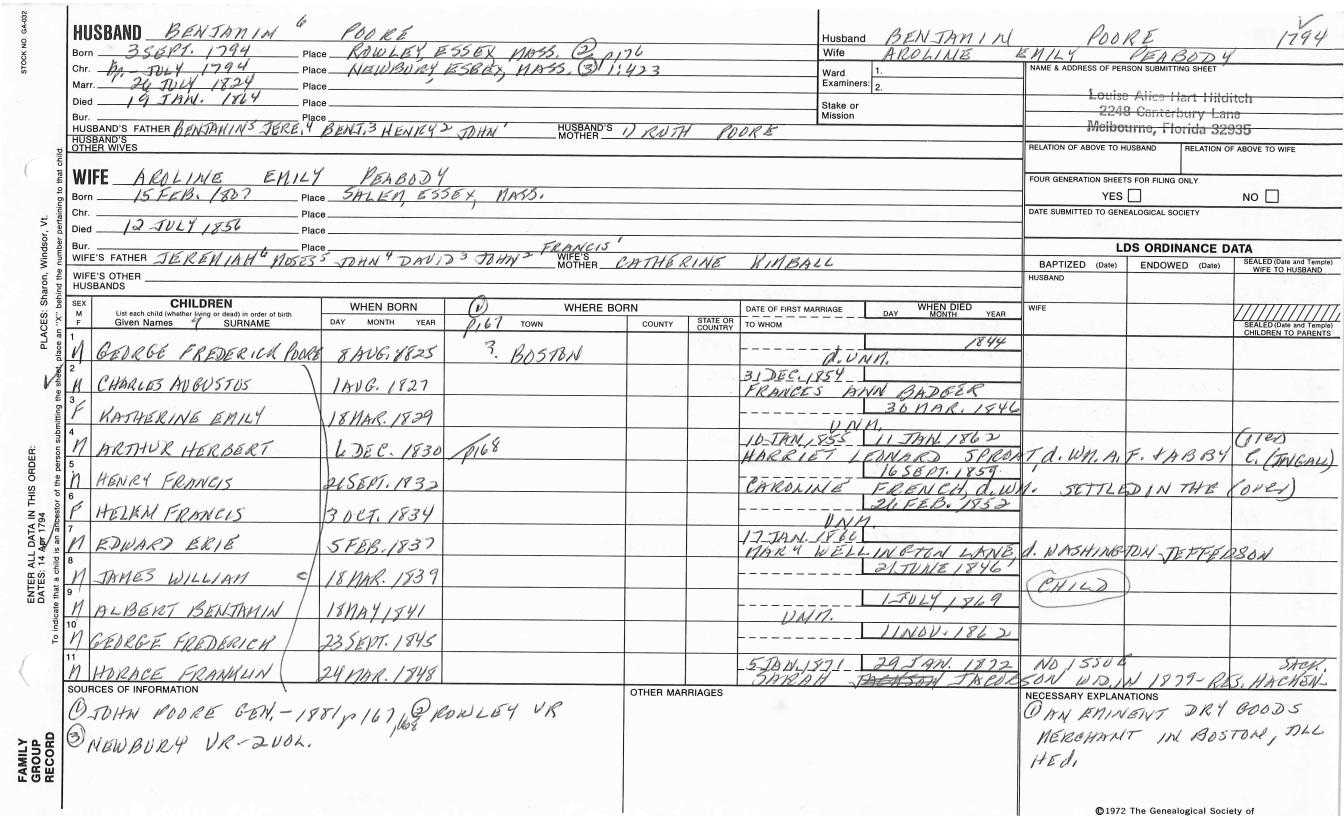 STOCK NO. GA-032
HUSBAND BENJAMIN 6 POORE
Born 3 SEPT. 1794 Place ROWLEY, ESSEX, MASS. (2) p176
Chr. JULY 1794 Place NEWBURY, ESSEX, MASS. (3) p1:423
Marr. 26 JULY 1824 Place
Died 19 JAN. 1864 Place
Bur. Place
HUSBAND'S FATHER BENJAMIN5 JERE.4 BENJ.3 HENRY2 JOHN1 HUSBAND'S MOTHER 1) RUTH POORE
HUSBAND'S OTHER WIVES
Husband BENJAMIN POORE 1794
Wife AROLINE EMILY PEABODY
Ward Examiners: 1.
2.
Stake or Mission
NAME & ADDRESS OF PERSON SUBMITTING SHEET
Louise Alice Hart Hilditch
2248 Canterbury Lane
Melbourne, Florida 32935
RELATION OF ABOVE TO HUSBAND RELATION OF ABOVE TO WIFE
FOUR GENERATION SHEETS FOR FILING ONLY
YES NO
DATE SUBMITTED TO GENEALOGICAL SOCIETY
WIFE AROLINE EMILY PEABODY
Born 15 FEB. 1807 Place SALEM, ESSEX, MASS.
Chr. Place
Died 12 JULY 1856 Place
Bur. Place
WIFE'S FATHER JEREMIAH6 MOSES5 JOHN4 DAVID3 JOHN2 FRANCIS1 WIFE'S MOTHER CATHERINE KIMBALL
WIFE'S OTHER HUSBANDS
LDS ORDINANCE DATA
BAPTIZED (Date) ENDOWED (Date) SEALED (Date and Temple) WIFE TO HUSBAND
HUSBAND
WIFE
SEALED (Date and Temple) CHILDREN TO PARENTS
SEX M F CHILDREN WHEN BORN (1) WHERE BORN DATE OF FIRST MARRIAGE WHEN DIED
List each child (whether living or dead) in order of birth
Given Names SURNAME DAY MONTH YEAR p.167 TOWN COUNTY STATE OR COUNTRY TO WHOM DAY MONTH YEAR
1 M GEORGE FREDERICK POORE 8 AUG. 1825 ? BOSTON 1844
d. UNM.
2 M CHARLES AUGUSTUS 1 AUG. 1827 31 DEC. 1854
FRANCES ANN BADGER
3 F KATHERINE EMILY 18 MAR. 1829 30 MAR. 1846
UNM.
4 M ARTHUR HERBERT 6 DEC. 1830 p168 10 JAN. 1855 11 JAN 1862
HARRIET LEONARD SPROAT, d. WM. A.F. + ABBY C. (INGALL)
5 M HENRY FRANCIS 21 SEPT. 1832 16 SEPT. 1859
CAROLINE FRENCH, d. WM. SETTLED IN THE (over)
6 F HELEM FRANCIS 3 OCT. 1834 26 FEB. 1852
UNM.
7 M EDWARD ERIE 5 FEB. 1837 17 JAN. 1866
MARY WELLINGTON LANE, d. WASHINGTON JEFFERSON
8 M JAMES WILLIAM 18 MAR. 1839 21 JUNE 1846 CHILD
9 M ALBERT BENJAMIN 18 MAY 1841 1 JULY 1869
UNM.
10 M GEORGE FREDERICK 23 SEPT. 1845 11 NOV. 1862
11 M HORACE FRANKLIN 24 MAR. 1848 5 JAN. 1871 29 JAN. 1872 NO ISSUE SACK.
SARAH JACKSON JACOBSON WD. IN 1879 - RES. HACKEN-
SOURCES OF INFORMATION
(1) JOHN POORE GEN. - 1881 p167, 168 (2) ROWLEY VR
(3) NEWBURY VR - 2 VOL.
OTHER MARRIAGES
NECESSARY EXPLANATIONS
(1) AN EMINENT DRY GOODS
MERCHANT IN BOSTON, ILL
HEd.
©1972 The Genealogical Society of
PLACES: Sharon, Windsor, Vt.
ENTER ALL DATA IN THIS ORDER:
DATES: 14 Apr 1794
To indicate that a child is an ancestor of the person submitting the sheet, place an "X" behind the number pertaining to that child.
FAMILY GROUP RECORD